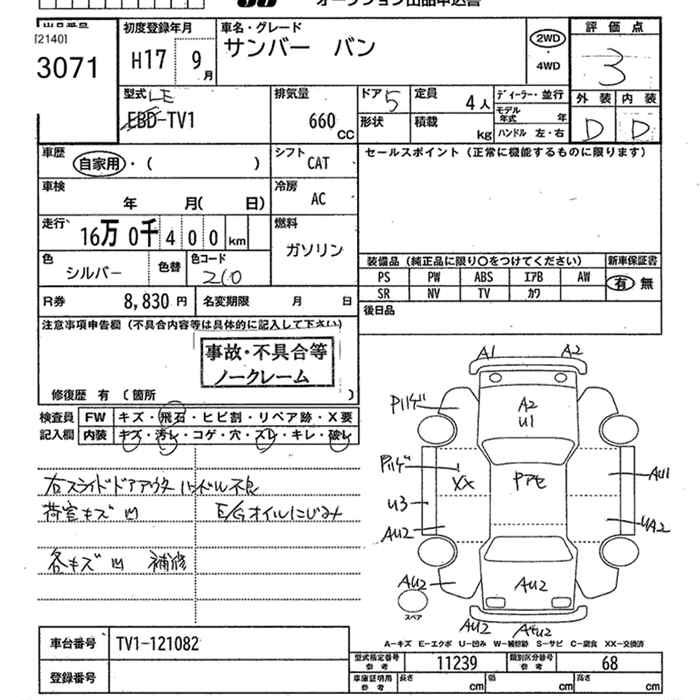 オークション出品申込書
出品番号
[2140]
3071
初度登録年月
H17 9月
車名・グレード
サンバー バン
2WD
4WD
評価点
3
外装 内装
D D
型式
LE
EBD-TV1
排気量
660 CC
ドア 5
形状
定員 4人
積載 kg
ディーラー・並行
モデル年式 年
ハンドル 左・右
車歴
自家用・( )
シフト
CAT
セールスポイント（正常に機能するものに限ります）
車検
年 月( 日)
冷房
AC
走行
16万 0千 400 km
燃料
ガソリン
色
シルバー
色替
色コード
210
装備品（純正品に限り○をつけてください）
新車保証書
PS PW ABS エアB AW
有 無
SR NV TV カワ
R券 8,830円
名変期限 月 日
後日品
注意事項申告欄（不具合内容等は具体的に記入して下さい）
事故・不具合等
ノークレーム
修復歴 有 〔箇所 〕
検査員
記入欄
FW キズ・飛石・ヒビ割・リペア跡・X要
内装 キズ・汚レ・コゲ・穴・スレ・キレ・破レ
右スライドドアアウターハンドル不良
荷室キズ凹 E/Gオイルにじみ
各キズ凹 補修
A1 A2
A2
U1
XX
U3
AU2
AU1
UA2
AU2
AU2
AU2
スペア
A=キズ E=エクボ U=凹み W=補修跡 S=サビ C=腐食 XX=交換済
車台番号 TV1-121082
登録番号
型式指定番号 参考 11239
類別区分番号 参考 68
車庫証明用 参考 長さ cm 幅 cm 高さ cm